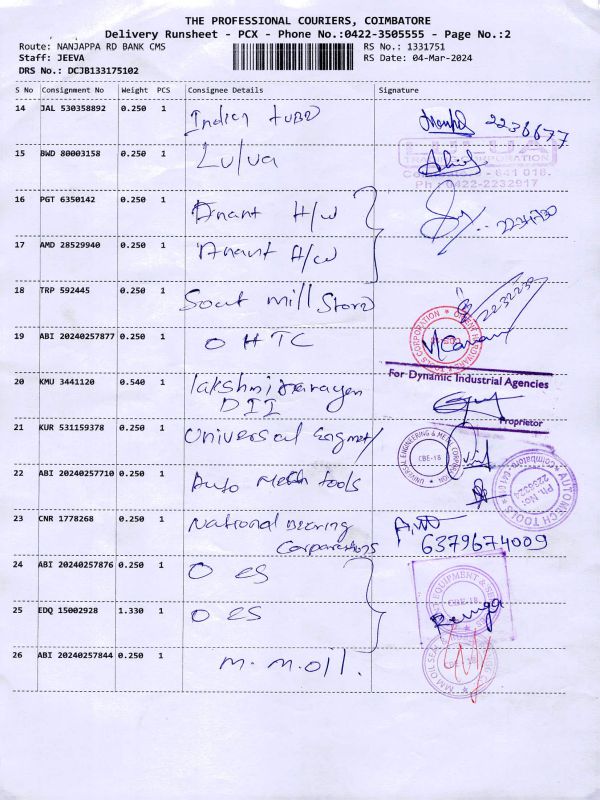 THE PROFESSIONAL COURIERS, COIMBATORE
Delivery Runsheet - PCX - Phone No.:0422-3505555 - Page No.:2
Route: NANJAPPA RD BANK CMS RS No.: 1331751
Staff: JEEVA RS Date: 04-Mar-2024
DRS No.: DCJB133175102
S No Consignment No Weight PCS Consignee Details Signature
14 JAL 530358892 0.250 1 Indian tube 2236677
15 BWD 80003158 0.250 1 Lulua
CORPORATION
641 018.
Ph : 0422-2232917
16 PGT 6350142 0.250 1 Anant H/w
17 AMD 28529940 0.250 1 Anant H/w
18 TRP 592445 0.250 1 Sout mill Store
19 ABI 20240257877 0.250 1 OHTC
For Dynamic Industrial Agencies
20 KMU 3441120 0.540 1 lakshminarayan
DII
Proprietor
21 KUR 531159378 0.250 1 Universal Engnery
UNIVERSAL ENGINEERING & CORPORATION
CBE-18
22 ABI 20240257710 0.250 1 Auto Mech tools
AUTOMECH TOOLS
Ph.No:
23 CNR 1778268 0.250 1 National Bearing
Corporations
6379674009
24 ABI 20240257876 0.250 1 OES
EQUIPMENT &
CBE-18
25 EDQ 15002928 1.330 1 OES
26 ABI 20240257844 0.250 1 m.m.oil.
MM OIL SEAL